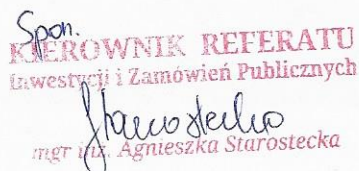 Spon.
KIEROWNIK REFERATU
Inwestycji i Zamówień Publicznych
Starostecka
mgr inż. Agnieszka Starostecka